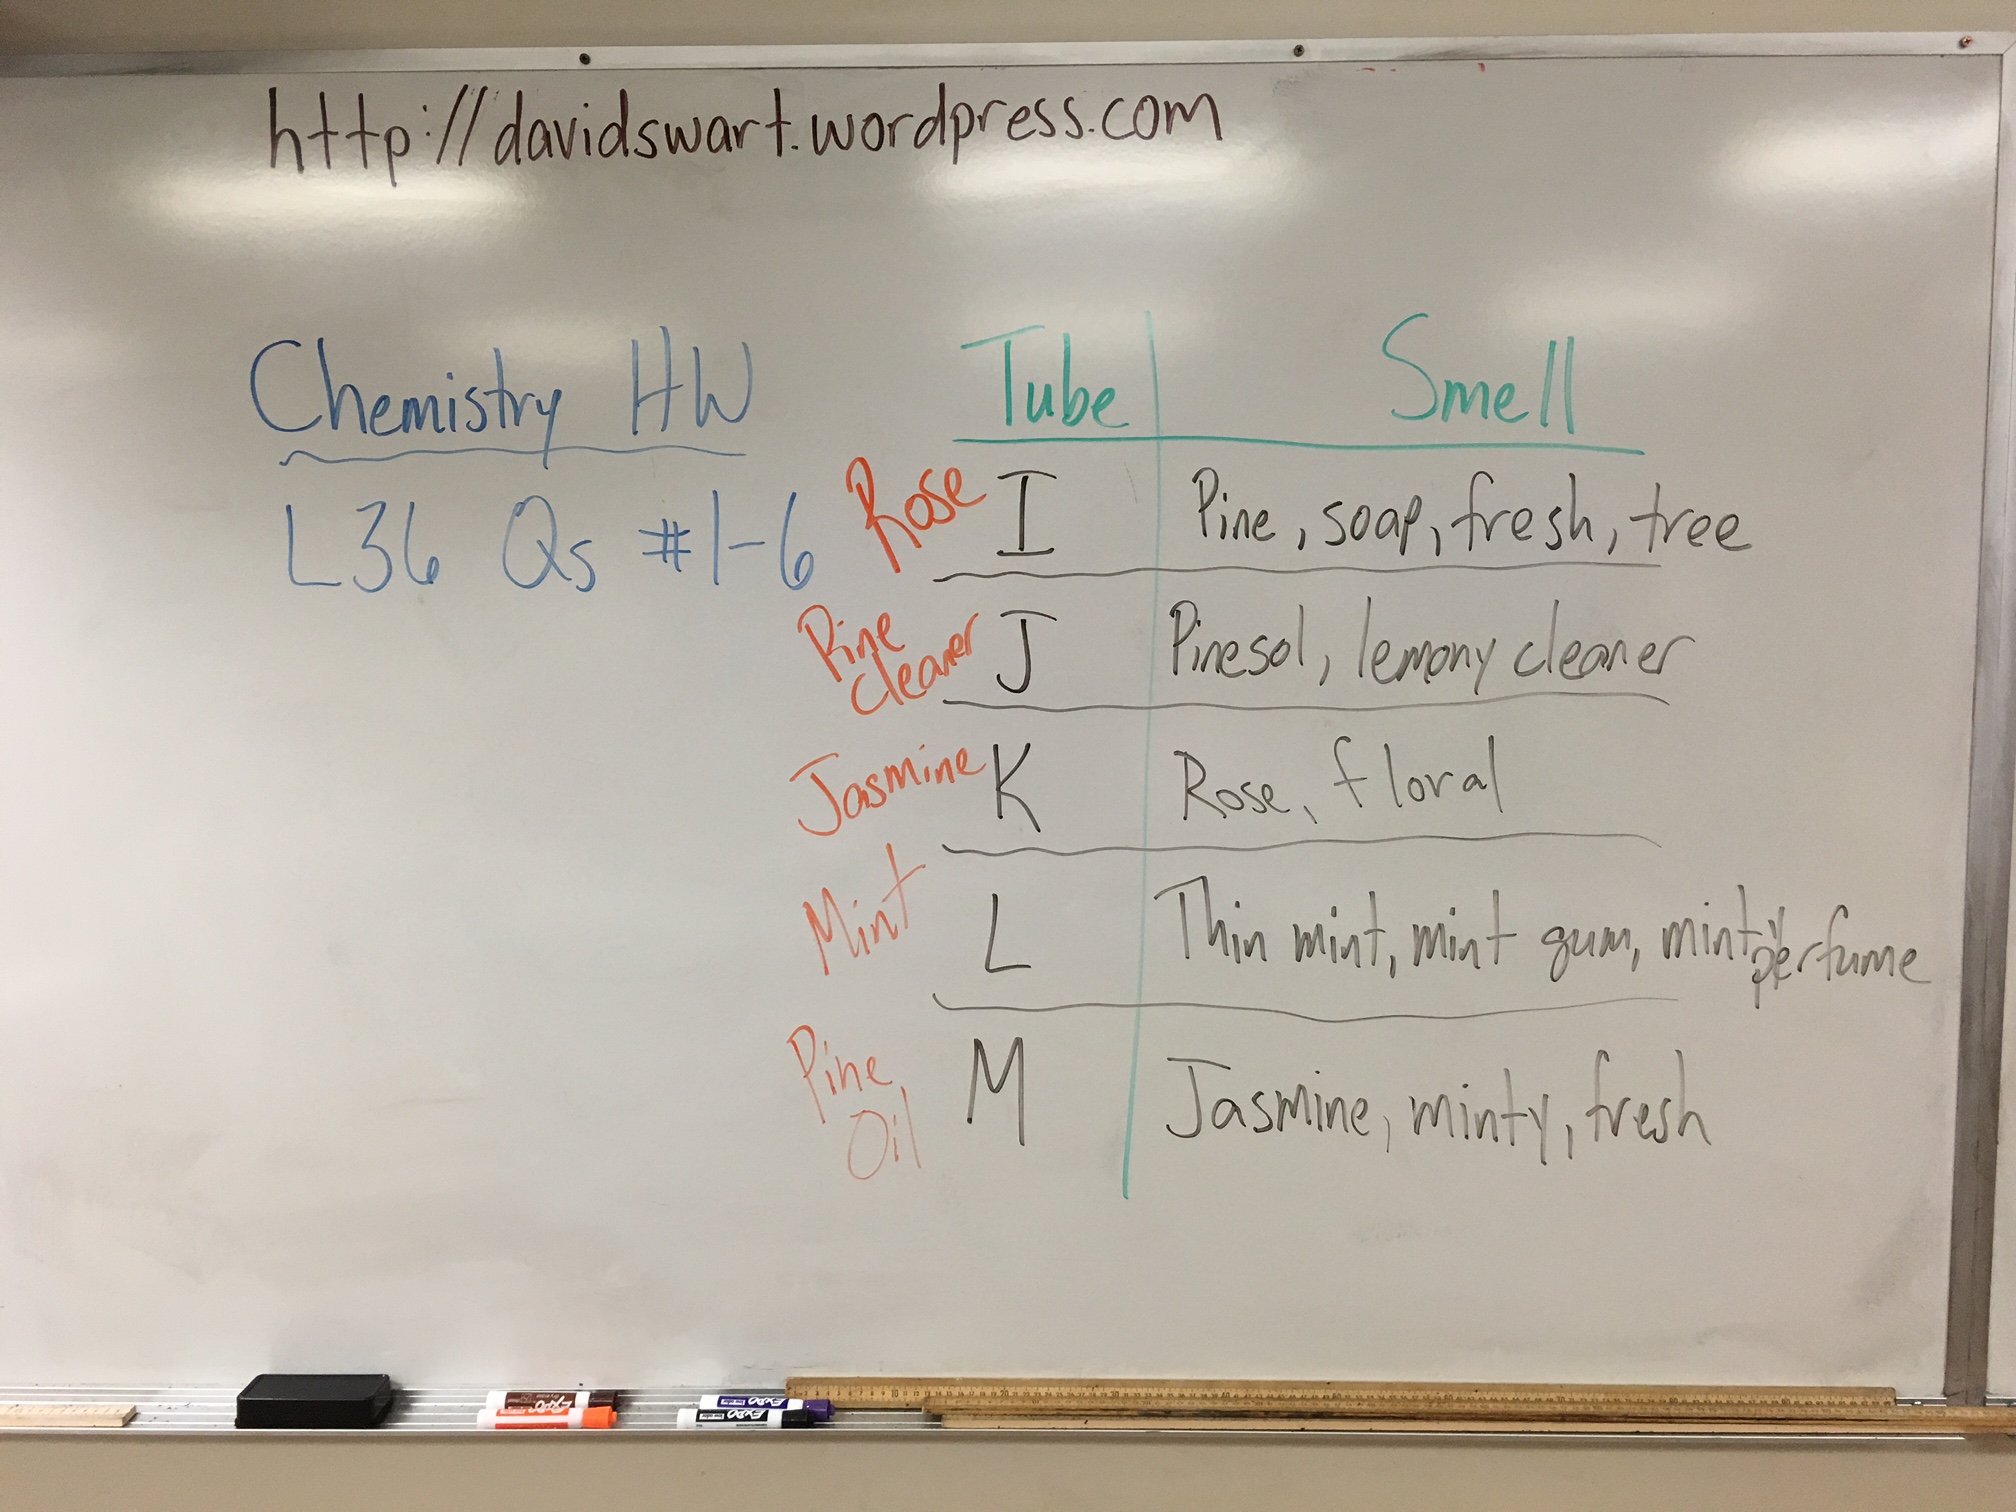 http://davidswart.wordpress.com
Chemistry HW
L36 Qs #1-6
Tube Smell
Rose I Pine, soap, fresh, tree
Pine
cleaner J Pinesol, lemony cleaner
Jasmine K Rose, floral
Mint L Thin mint, mint gum, minty perfume
Pine
Oil M Jasmine, minty, fresh
EXPO
EXPO
EXPO
EXPO